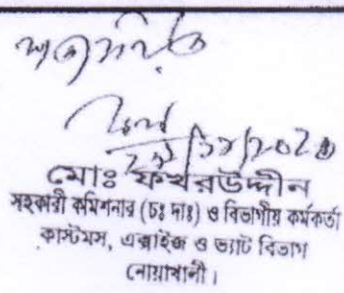 সত্যায়িত
মোঃ ফখরউদ্দীন
সহকারী কমিশনার (চঃ দাঃ) ও বিভাগীয় কর্মকর্তা
কাস্টমস, এক্সাইজ ও ভ্যাট বিভাগ
নোয়াখালী।